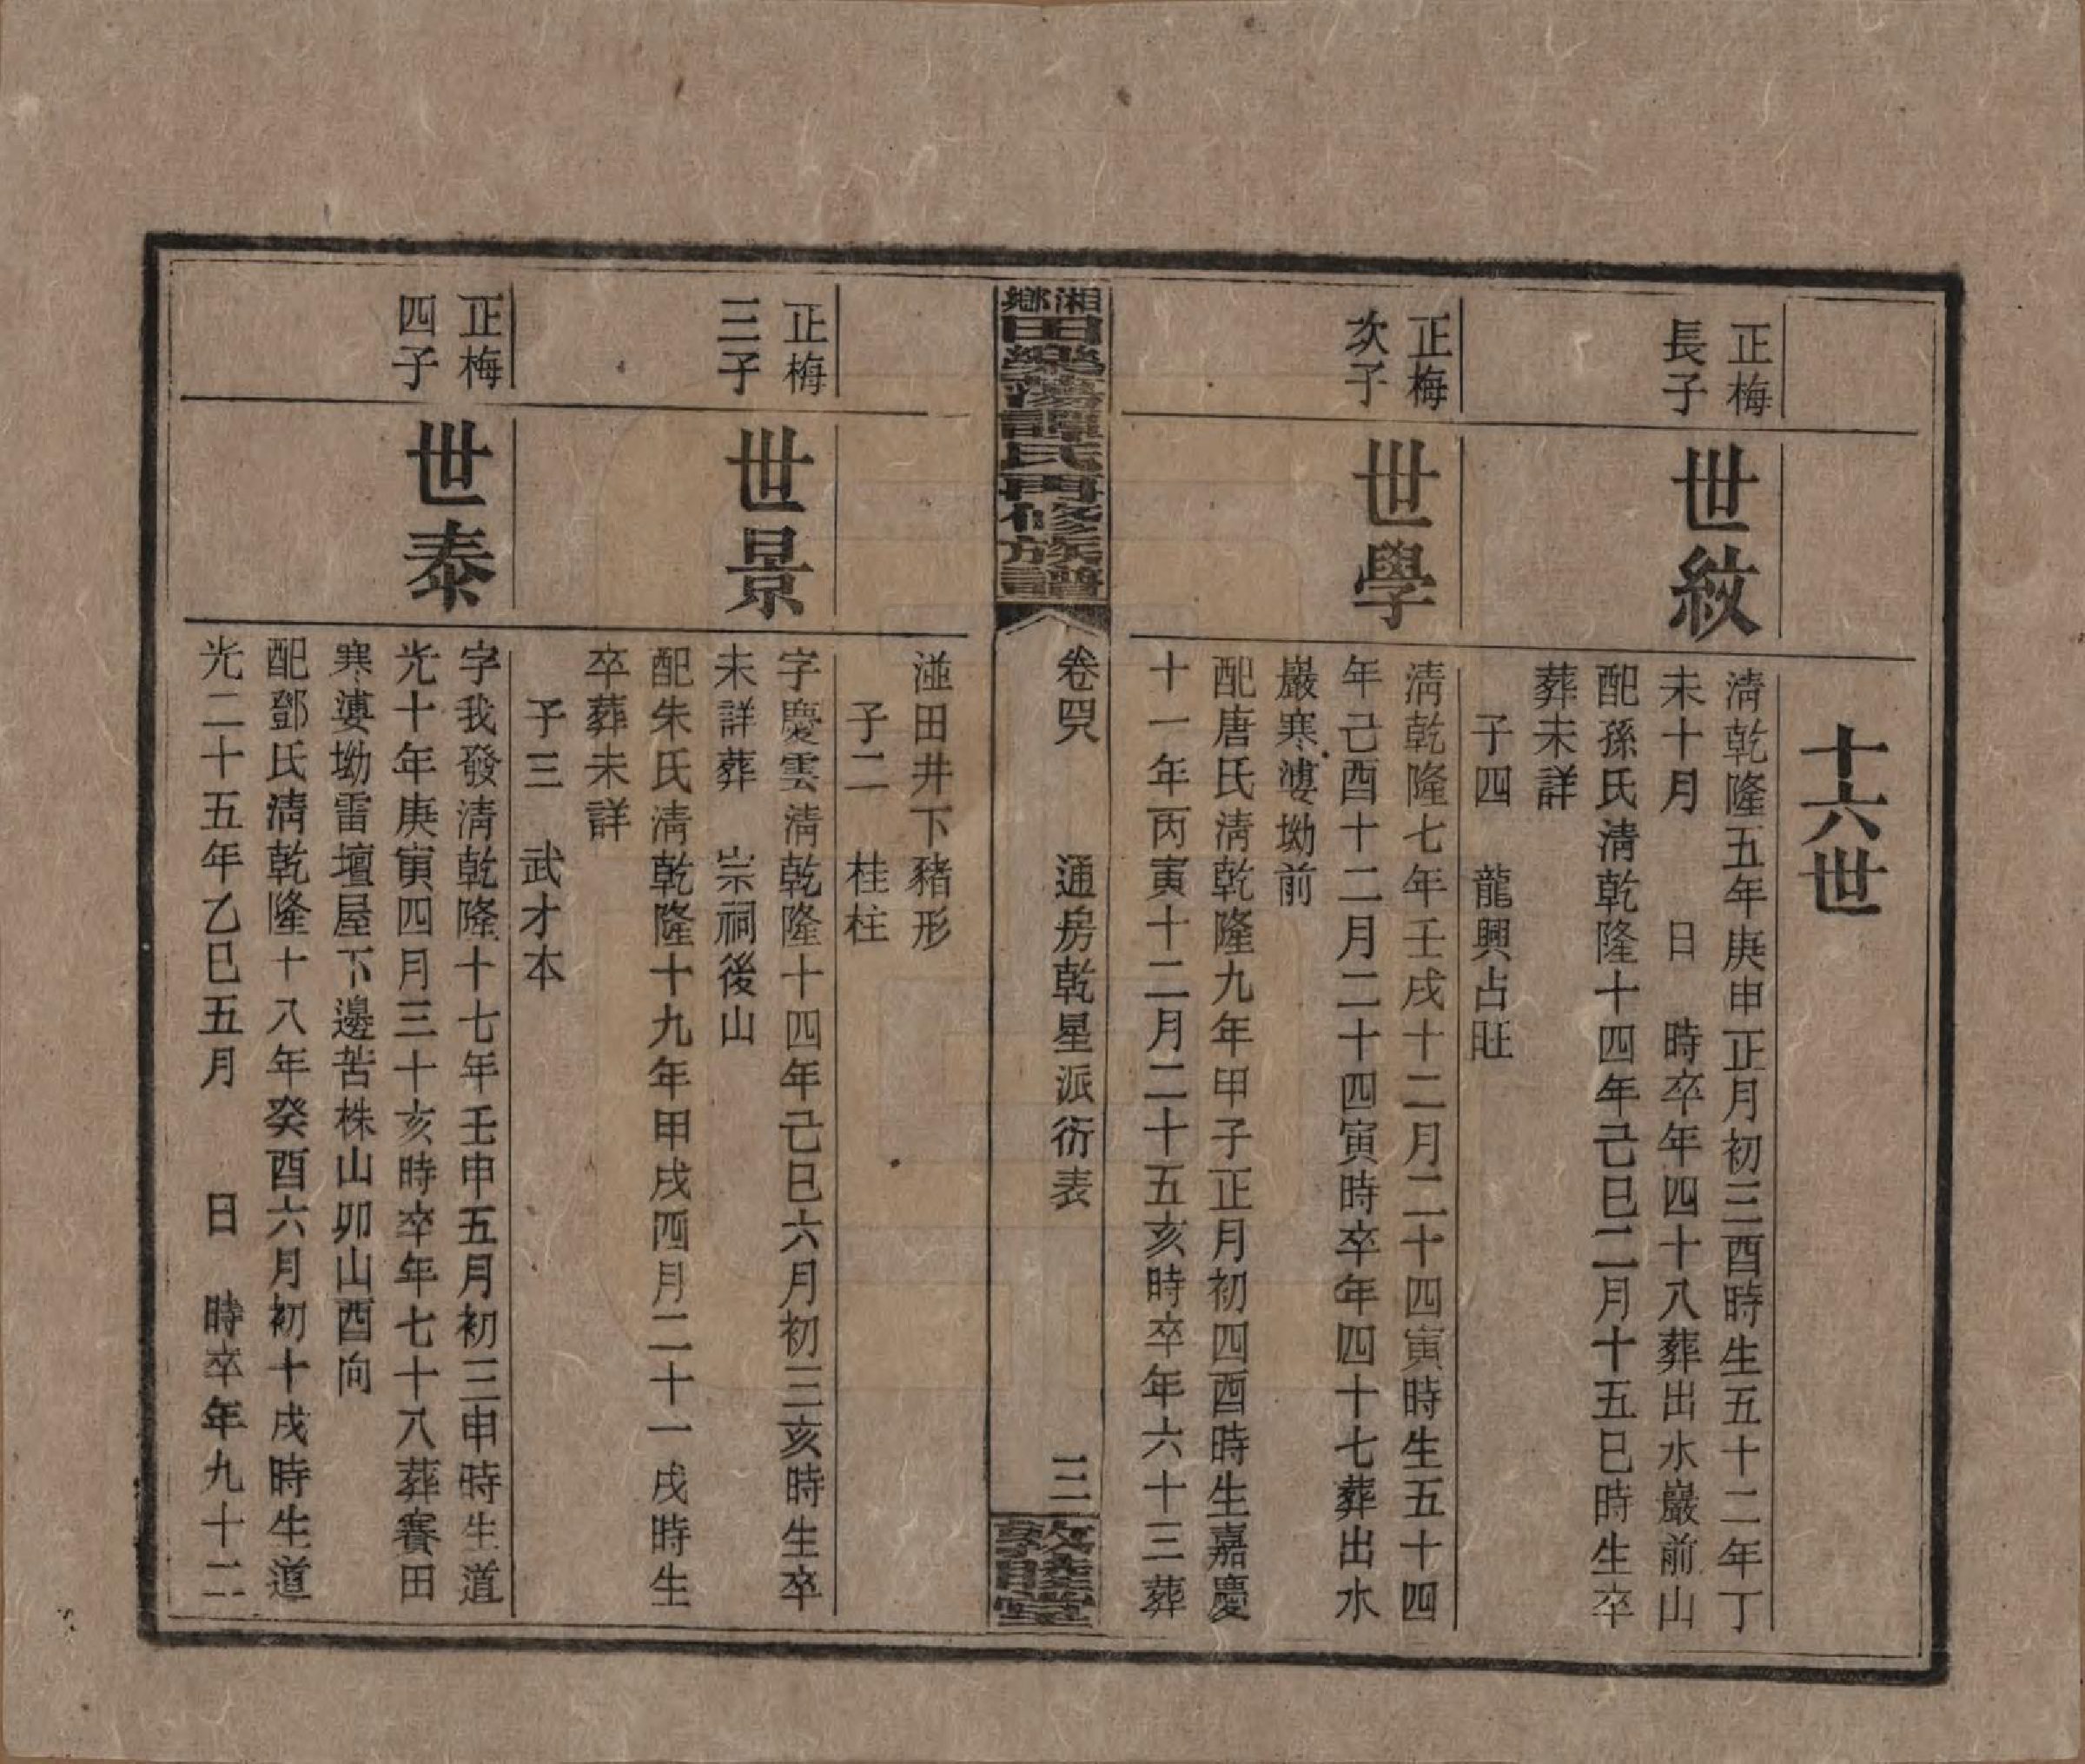 十六世
正梅
長子
世紋
淸乾隆五年庚申正月初三酉時生五十二年丁
未十月　日　時卒年四十八葬出水巖前山
配孫氏淸乾隆十四年己巳二月十五巳時生卒
葬未詳
子四　龍興占旺
正梅
次子
世學
淸乾隆七年壬戌十二月二十四寅時生五十四
年己酉十二月二十四寅時卒年四十七葬出水
巖寒漊坳前
配唐氏淸乾隆九年甲子正月初四酉時生嘉慶
十一年丙寅十二月二十五亥時卒年六十三葬
湘鄉田樂蕩譚氏再修族譜
卷四　通房乾星派衍表　三
敦睦堂
湴田井下豬形
子二　桂柱
正梅
三子
世景
字慶雲淸乾隆十四年己巳六月初三亥時生卒
未詳葬　宗祠後山
配朱氏淸乾隆十九年甲戌四月二十一戌時生
卒葬未詳
子三　武才本
正梅
四子
世泰
字我發淸乾隆十七年壬申五月初三申時生道
光十年庚寅四月三十亥時卒年七十八葬賽田
寒漊坳雷壇屋下邊苦株山卯山酉向
配鄧氏淸乾隆十八年癸酉六月初十戌時生道
光二十五年乙巳五月　日　時卒年九十二